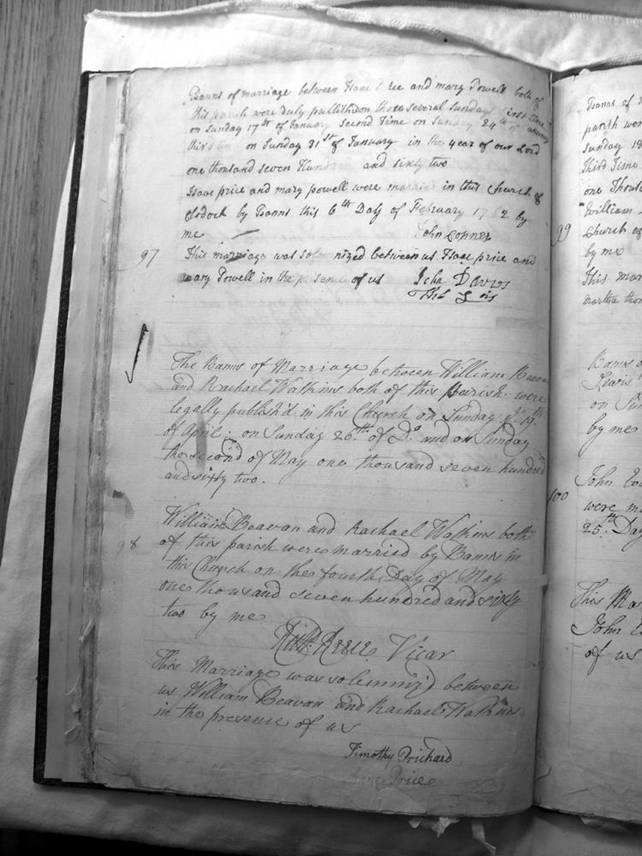 Banns of marriage between Isaac and mary Powell both of
this parish were duly published on three several Sundays first time
on Sunday 17th of January Second Time on Sunday 24th of January
third on Sunday 31st of January in the year of our Lord
one thousand seven Hundred and sixty two
Isaac price and mary powell were married in this Church of
Clodock by Banns this 6th Day of February 1762 by
me John
97 This marriage was solemnized between us Isaac price and
mary Powell in the presence of us John Davies
The Banns of Marriage between William Beavan
and Rachael Watkins both of this parish were
legally publish'd in this Church on Sunday ye 19th
of April: on Sunday 26th of Do and on Sunday
the second of May one thousand seven hundred
and sixty two.
98 William Beavan and Rachael Watkins both
of this parish were married by Banns in
this Church on the fourth Day of May
one thousand seven hundred and sixty
two by me
Vicar
This Marriage was solemniz'd between
us William Beavan and Rachael Watkins
in the presence of us
Timothy Prichard
Price
Banns of
parish wer
Sunday
third Time
one Thous
William
99 Church of
by me
This mar
Banns of
Lewis
on Sun
by me
John
100 were m
25th Day
This Ma
John
of us